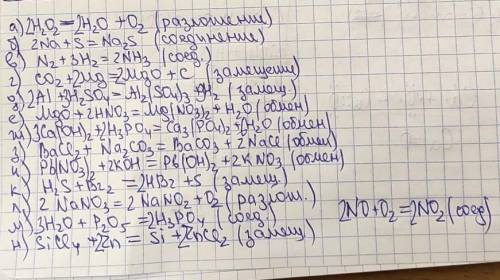 а) 2H₂O₂ = 2H₂O + O₂ (разложение)
б) 2Na + S = Na₂S (соединение)
в) N₂ + 3H₂ = 2NH₃ (соед.)
г) CO₂ + 2Mg = 2MgO + C (замещение)
д) 2Al + 3H₂SO₄ = Al₂(SO₄)₃ + 3H₂ (замещ.)
е) MgO + 2HNO₃ = Mg(NO₃)₂ + H₂O (обмен)
ж) 3Ca(OH)₂ + 2H₃PO₄ = Ca₃(PO₄)₂ + 6H₂O (обмен)
з) BaCl₂ + Na₂CO₃ = BaCO₃ + 2NaCl (обмен)
и) Pb(NO₃)₂ + 2KOH = Pb(OH)₂ + 2KNO₃ (обмен)
к) H₂S + Br₂ = 2HBr + S (замещ.)
л) 2NaNO₃ = 2NaNO₂ + O₂ (разлож.)
м) 3H₂O + P₂O₅ = 2H₃PO₄ (соед.)
2NO + O₂ = 2NO₂ (соед)
н) SiCl₄ + 2Zn = Si + 2ZnCl₂ (замещ)